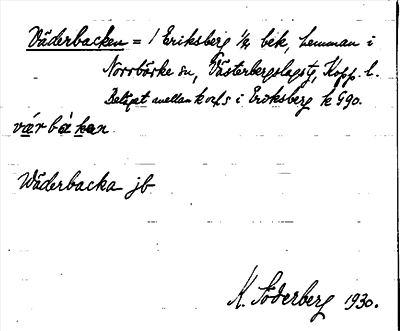 Väderbacken = 1 Eriksberg 1/4 bek, hemman i
Norrbärke sn, Västerbergslags tg, Kopp. l.
Beläget mellan kors i Eriksberg k 990.
värbákan
Wäderbacka jb
K. Söderberg 1930.